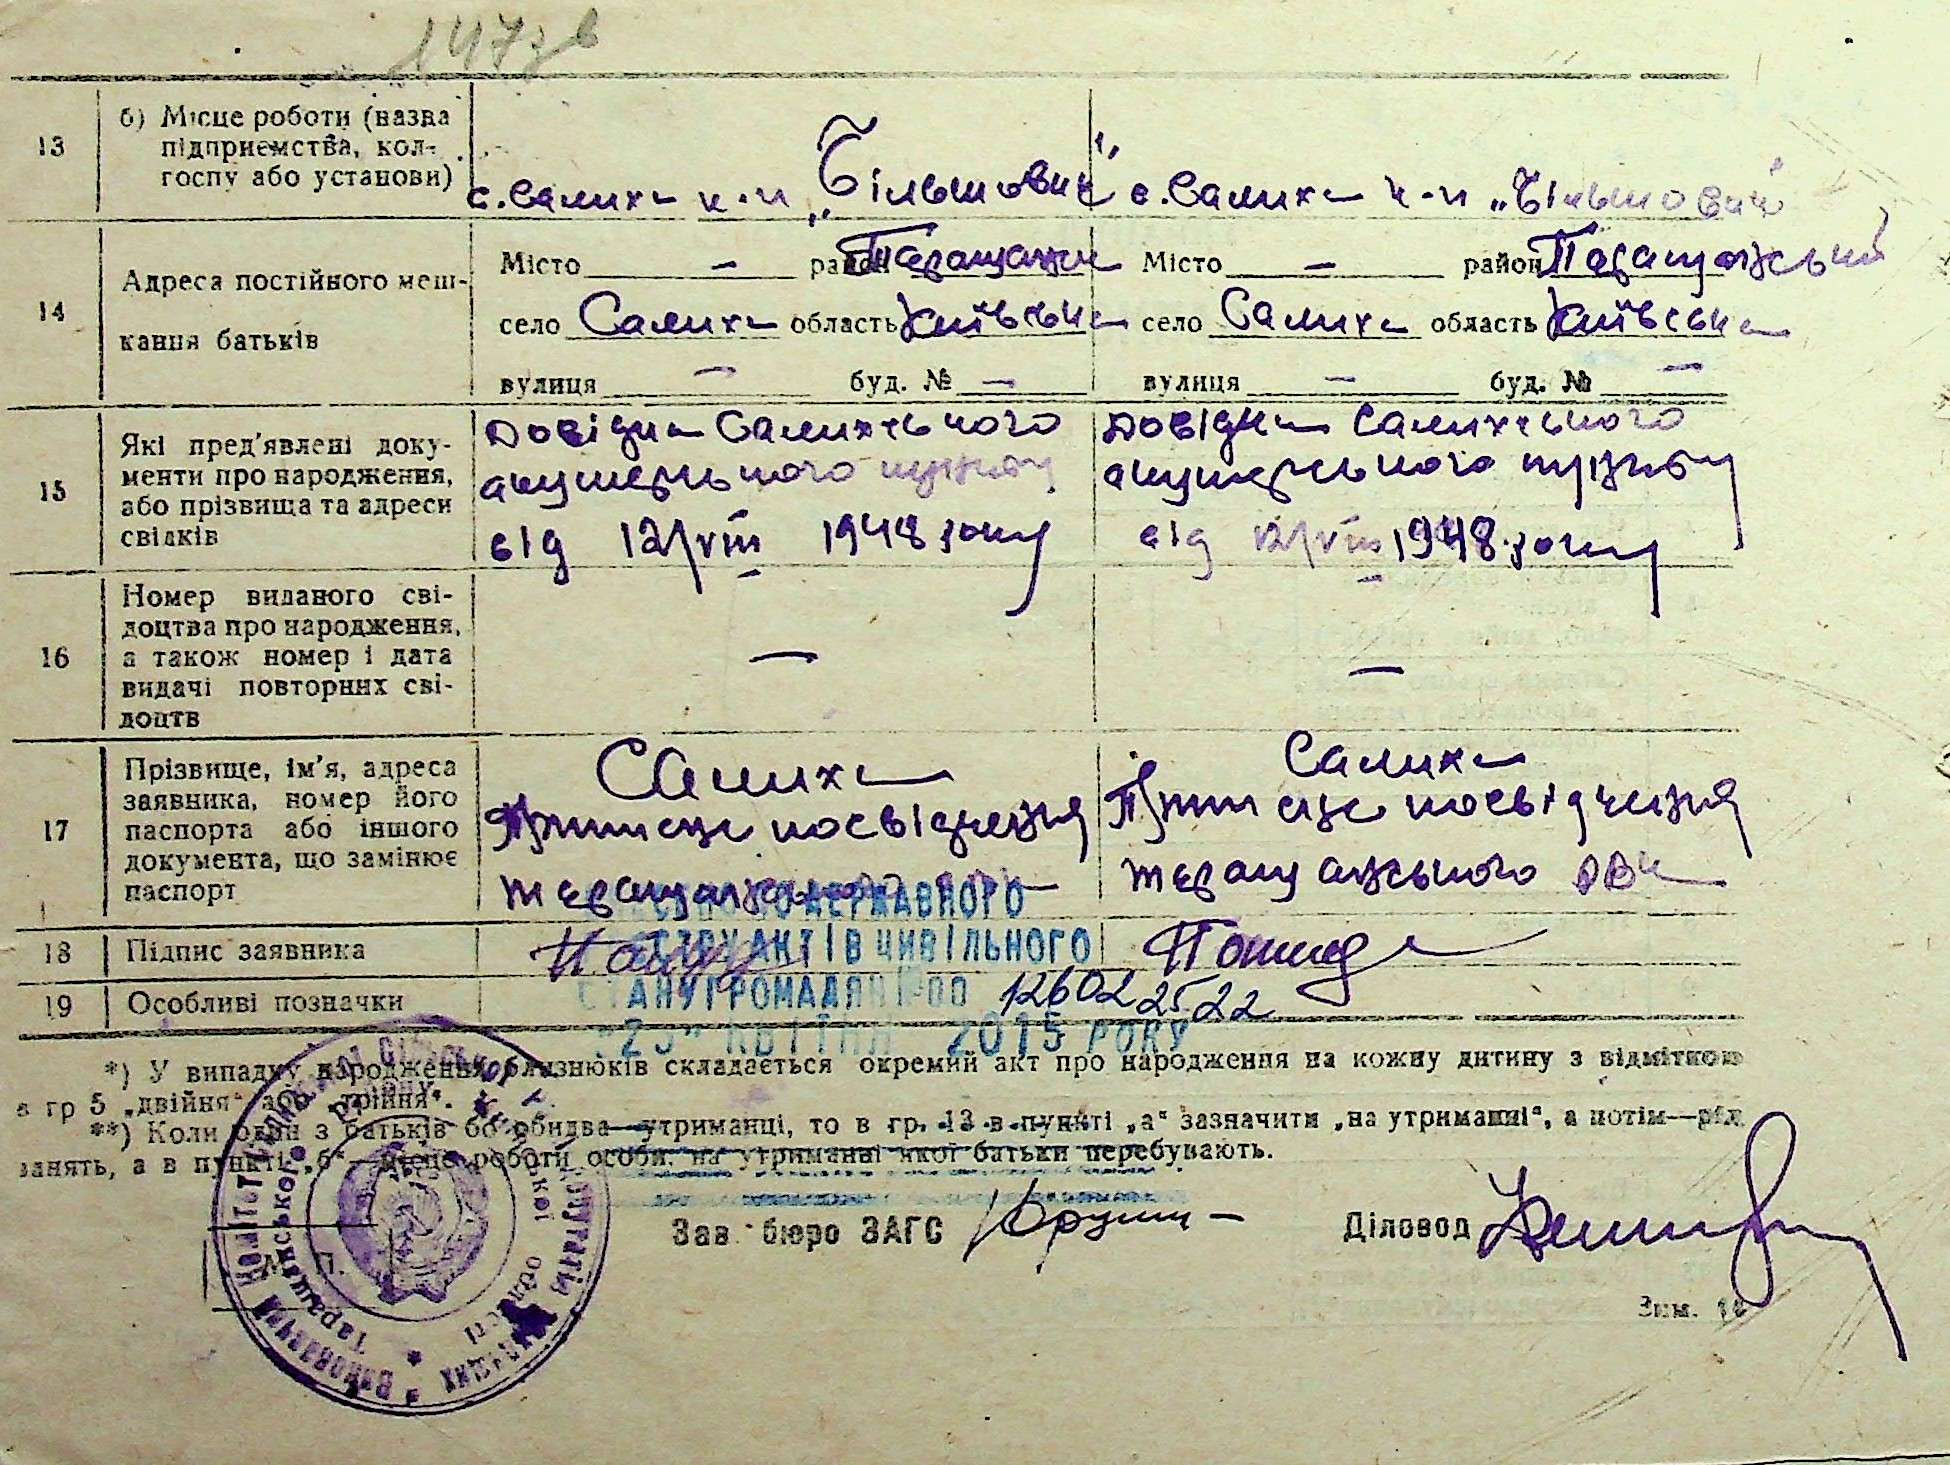 147зв
13
б) Місце роботи (назва підприємства, колгоспу або установи)
с. Салиха к-п „Більшовик"
с. Салиха к-п „Більшовик"
14
Адреса постійного мешкання батьків
Місто — район Таращанськ
село Салиха область Київська
вулиця — буд. № —
Місто — район Таращанський
село Салиха область Київська
вулиця — буд. № —
15
Які пред'явлені документи про народження, або прізвища та адреси свідків
Довідка Салихського
акушерського пункту
від 12/VIII 1948 року
Довідка Салихського
акушерського пункту
від 12/VIII 1948 року
16
Номер виданого свідоцтва про народження, а також номер і дата видачі повторних свідоцтв
—
—
17
Прізвище, ім'я, адреса заявника, номер його паспорта або іншого документа, що замінює паспорт
Салиха
Приписне посвідчення
Таращанського
Салиха
Приписне посвідчення
Таращанського РВК
18
Підпис заявника
19
Особливі позначки
ДЕРЖАВНОГО
РЕЄСТРУ АКТІВ ЦИВІЛЬНОГО
СТАНУ ГРОМАДЯН № 00 126022522
"23" КВІТНЯ 2015 РОКУ
*) У випадку народження близнюків складається окремий акт про народження на кожну дитину з відміткою
в гр 5 „двійня" або „трійня".
**) Коли один з батьків бо обидва—утриманці, то в гр. 13 в пункті „а" зазначити „на утриманні", а потім—рід
занять, а в пункті „б"—місце роботи особи, на утриманні якої батьки перебувають.
Зав. бюро ЗАГС
Діловод
М. П.
Виконавчий комітет сільської депутатів трудящих
Таращанського району Київської області
Зам. 16